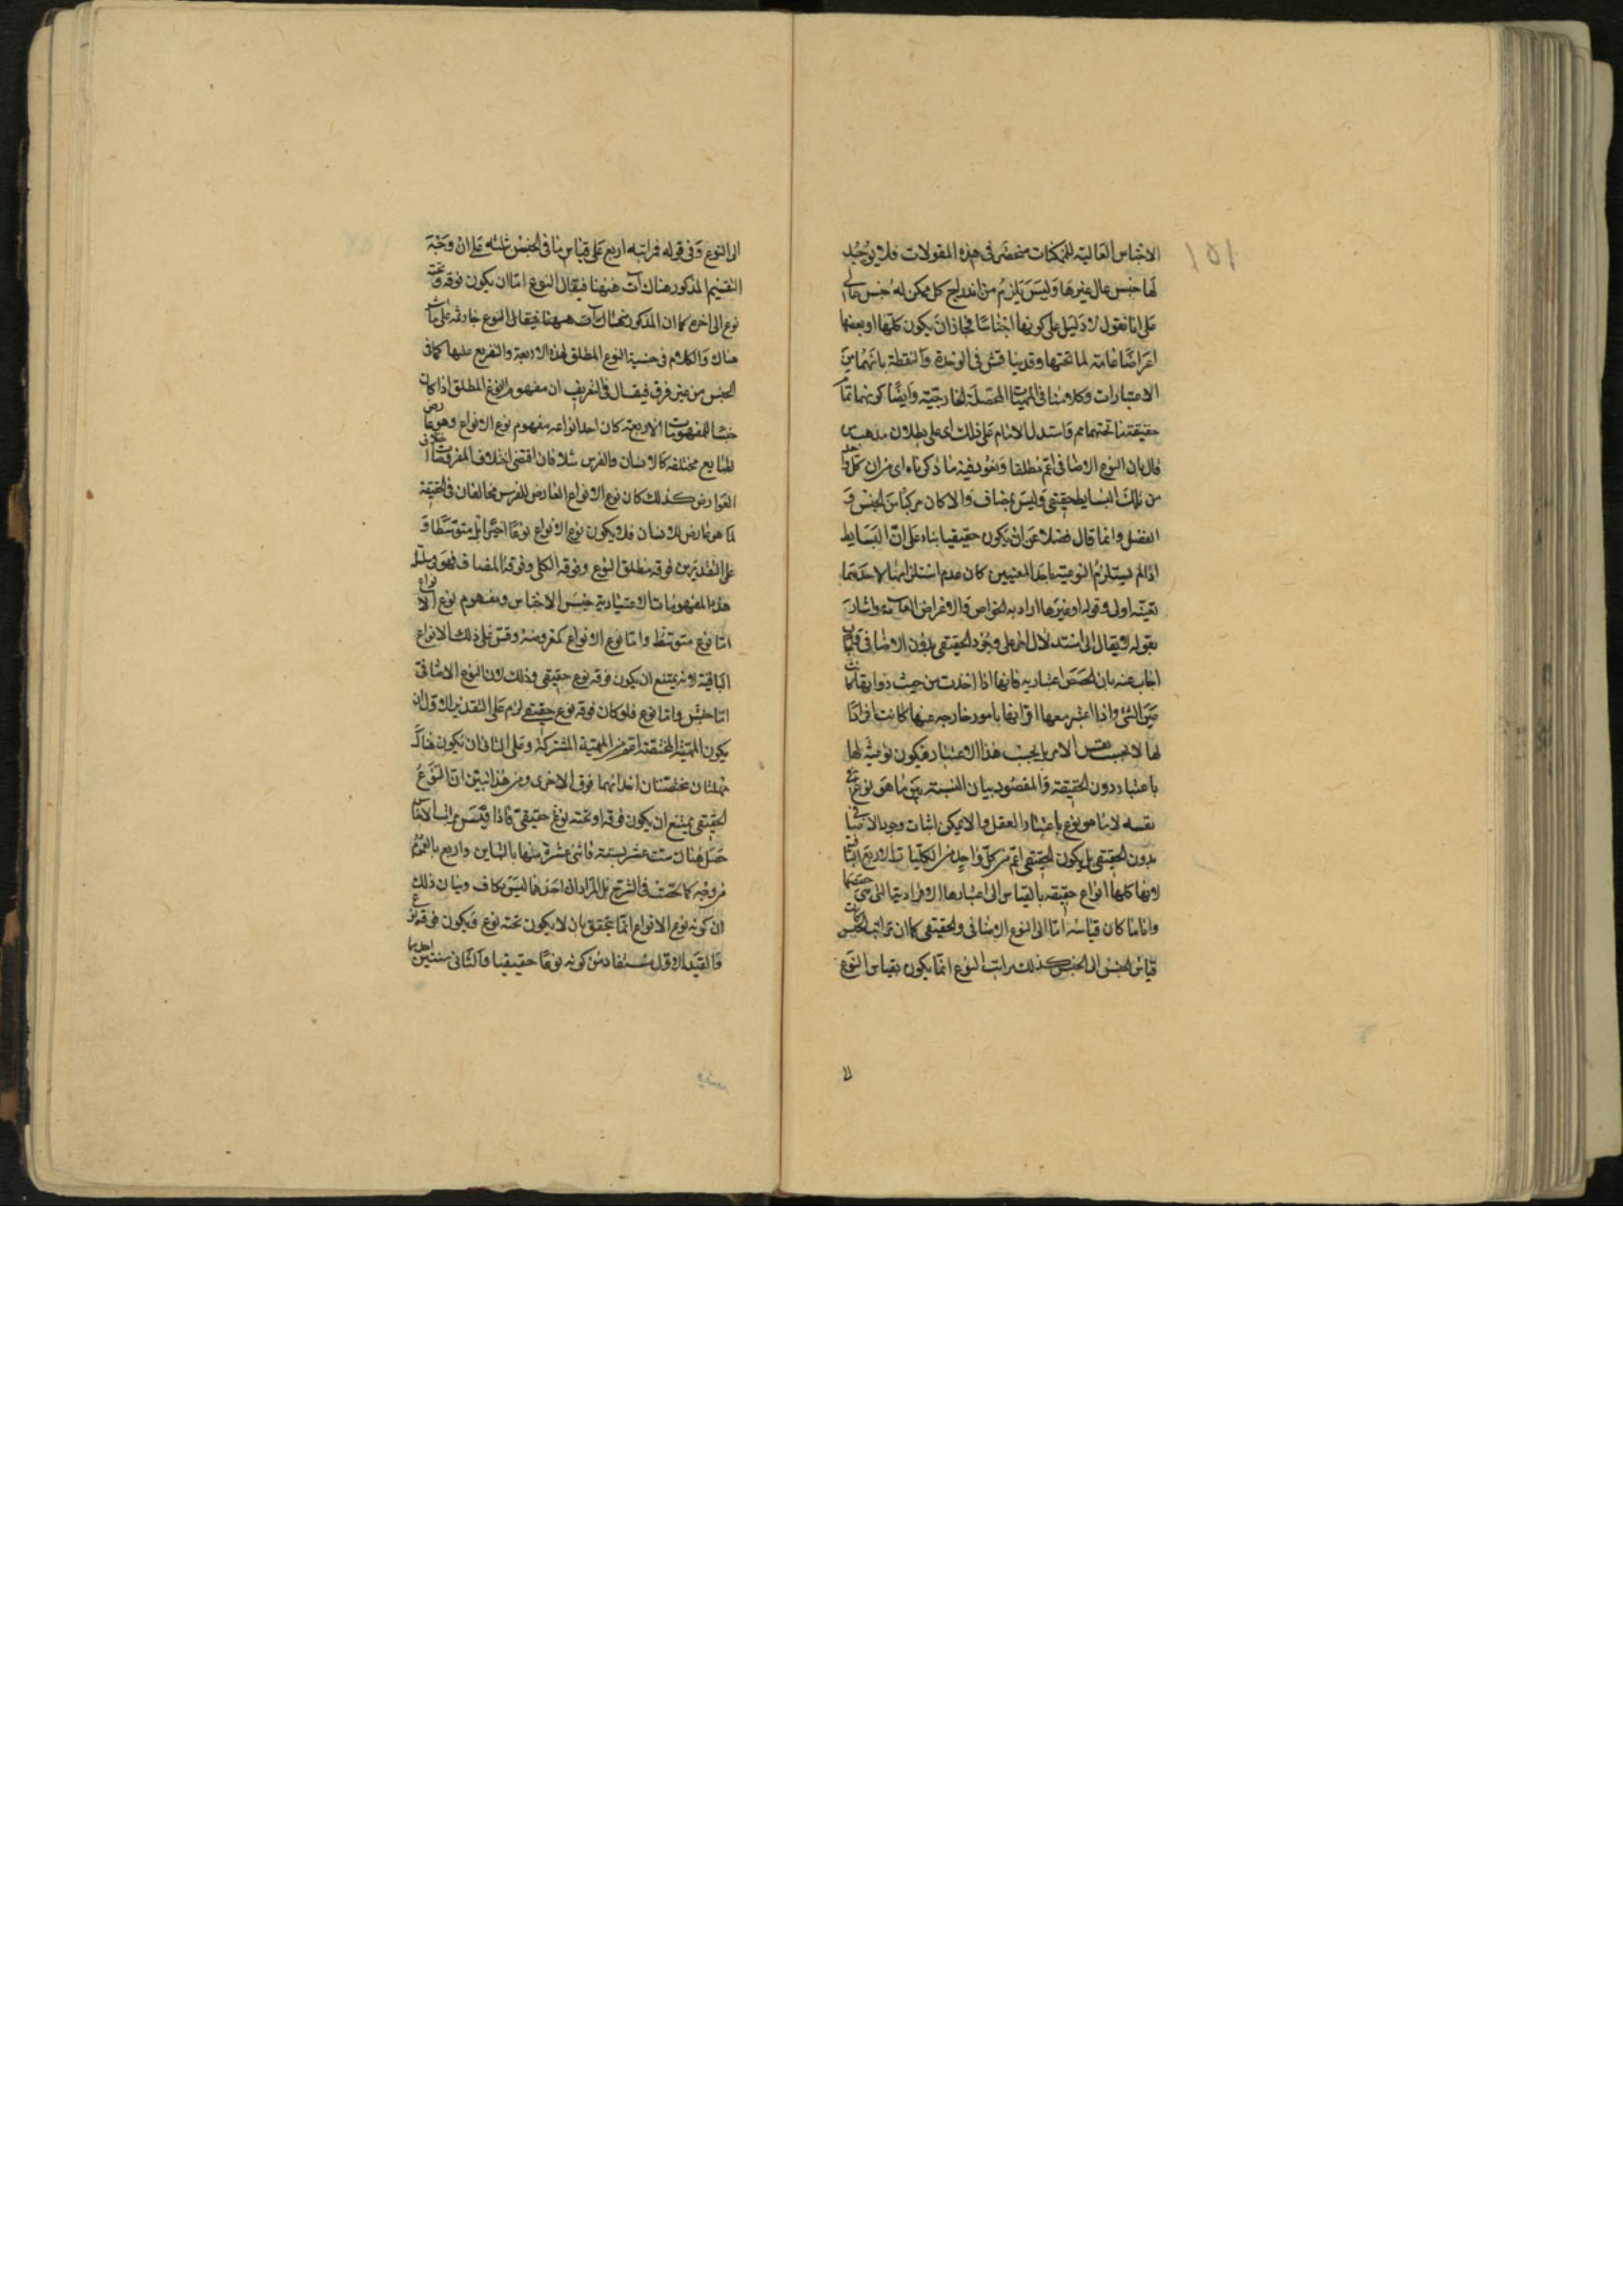 ١٥١
الاجناس العالية للممكنات منحصرة في هذه المقولات فلا يوجد
لها جنس عال غيرها وليس يلزم من اندراج كل ممكن له جنس عالي
على انا نقول لا دليل على كونها اجناسا فجاز ان يكون كلها او بعضها
اعراضا عامة لما تحتها وقد يناقش في الوحدة والنقطة بانهما من
الاعتبارات وكلامنا في المهيات المحصلة الخارجية وايضا كونهما تمام
حقيقة ما تحتهما مم فاستدل الامام على ذلك اى على بطلان مذهب من
قال بان النوع الاضافي اعم مطلقا وتعود فيه ما ذكرناه اى من ان كل واحد
من تلك البسايط حقيقي وليس بمضاف والا كان مركبا من الجنس و
الفصل وانما قال فضلا عن ان يكون حقيقيا بناء على ان البسايط
اذا لم يستلزم النوعية باحد المعنيين كان عدم استلزامها لاحدهما
بعينه اولى وقوله او غيرها اراد به الخواص والاعراض العامة واشار
بقوله لا يقال الى استدلال اخر على وجود الحقيقي بدون الاضافي
اجاب عنه بان الحصص اعتبارية فانها اذا اخذت من حيث ذواتها كانت
عين الشئ واذا اعتبر معها اقترانها بامور خارجة عنها كانت افرادا
لها لا بحسب نفس الامر بل بحسب هذا الاعتبار فيكون نوعية لها
باعتبار دون الحقيقة والمقصود بيان النسبة بين ما هو نوع في
نفسه لا ما هو نوع باعتبار العقل والا لا يمكن اثبات وجود الاضافي
بدون الحقيقي بل يكون الحقيقي اعم من كل واحد من الكليات الاربع الباقية
لانها كلها انواع حقيقة بالقياس الى اعتبارها الافرادية التي هي حصصها
وانما كان قياسه اما الى النوع الاضافي والحقيقي كما ان مراتب الجنس
قياس الجنس الى الجنس كذلك مراتب النوع انما يكون بقياس النوع
الى النوع وفي قوله فمراتبه اربع على قياس ما في الجنس تنبيه على ان وجه
التقسيم المذكور هناك آت ههنا فيقال النوع اما ان يكون فوقه وتحته
نوع الى اخره كما ان المذكور هناك آت ههنا فيقال النوع
هناك والكلام في جنسية النوع المطلق لهذه الاربعة والتفريع عليها كما في
الجنس من غير فرق فيقال في التفريع ان مفهوم النوع المطلق اذا كان
جنسا للمفهومات الاربعة كان احد انواعه مفهوم نوع الانواع وهو عارض
لطبايع مختلفة كالانسان والفرس مثلا فان اقتضى اختلاف المعروضات اختلاف
العوارض كذلك كان نوع الانواع العارض للفرس مخالفا في الحقيقة
لما هو عارض للانسان فلا يكون نوع الانواع نوعا اخيرا بل متوسطا و
على التقديرين فوقه مطلق النوع وفوقه الكلي وفوقه المضاف فهو
هذه المفهومات الاعتبارية جنس الاجناس ومفهوم نوع الانواع
اما نوع متوسط واما نوع الانواع كمعروضه وقس على ذلك الانواع
الباقية لانه يمتنع ان يكون فوقه نوع حقيقي وذلك لان النوع الاضافي
اما جنس واما نوع فلو كان فوقه نوع حقيقي لزم على التقدير الاول ان
يكون المهية المختصة اعم من المهية المشتركة وعلى الثاني ان يكون هناك
مهيتان مختصتان احدهما فوق الاخرى ومن هذا تبين ان النوع
الحقيقي يمتنع ان يكون فوقه او تحته نوع حقيقي فاذا قيس مراتب الاضافي
حصل هناك ست عشر نسبة فاثنى عشرة منها بالتباين واربع بالعموم
من وجه كما تحقق في الشرح بل المراد ان احدهما ليس بكاف وبيان ذلك
ان كونه نوع الانواع انما يتحقق بان لا يكون تحته نوع فيكون فوقه نوع
والقيد الاول مستفاد من كونه نوعا حقيقيا والثاني من احدى